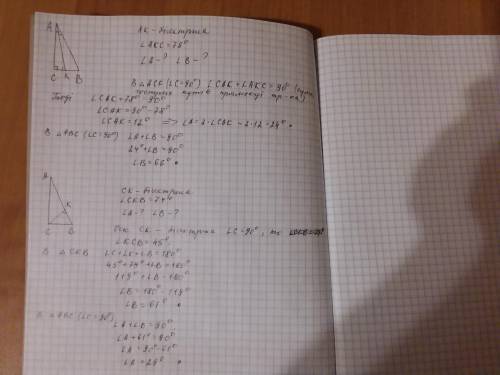 A
C K B
AK - бісектриса
∠AKC = 78°
∠A - ? ∠B - ?
В △ACK (∠C = 90°) ∠CAK + ∠AKC = 90° (сума
гострих кутів прямокут тр-ка)
Тоді ∠CAK + 78° = 90°
∠CAK = 90° - 78°
∠CAK = 12° => ∠A = 2 · ∠CAK = 2 · 12 = 24°.
В △ABC (∠C = 90°) ∠A + ∠B = 90°
24° + ∠B = 90°
∠B = 66°.
A
K
C B
CK - бісектриса
∠CKB = 74°
∠A - ? ∠B - ?
CK - бісектриса ∠C = 90°, то
∠KCB = 45°
В △CKB ∠C + ∠K + ∠B = 180°
45° + 74° + ∠B = 180°
119° + ∠B = 180°
∠B = 180° - 119°
∠B = 61°.
В △ABC (∠C = 90°)
∠A + ∠B = 90°
∠A + 61° = 90°
∠A = 90° - 61°
∠A = 29°.